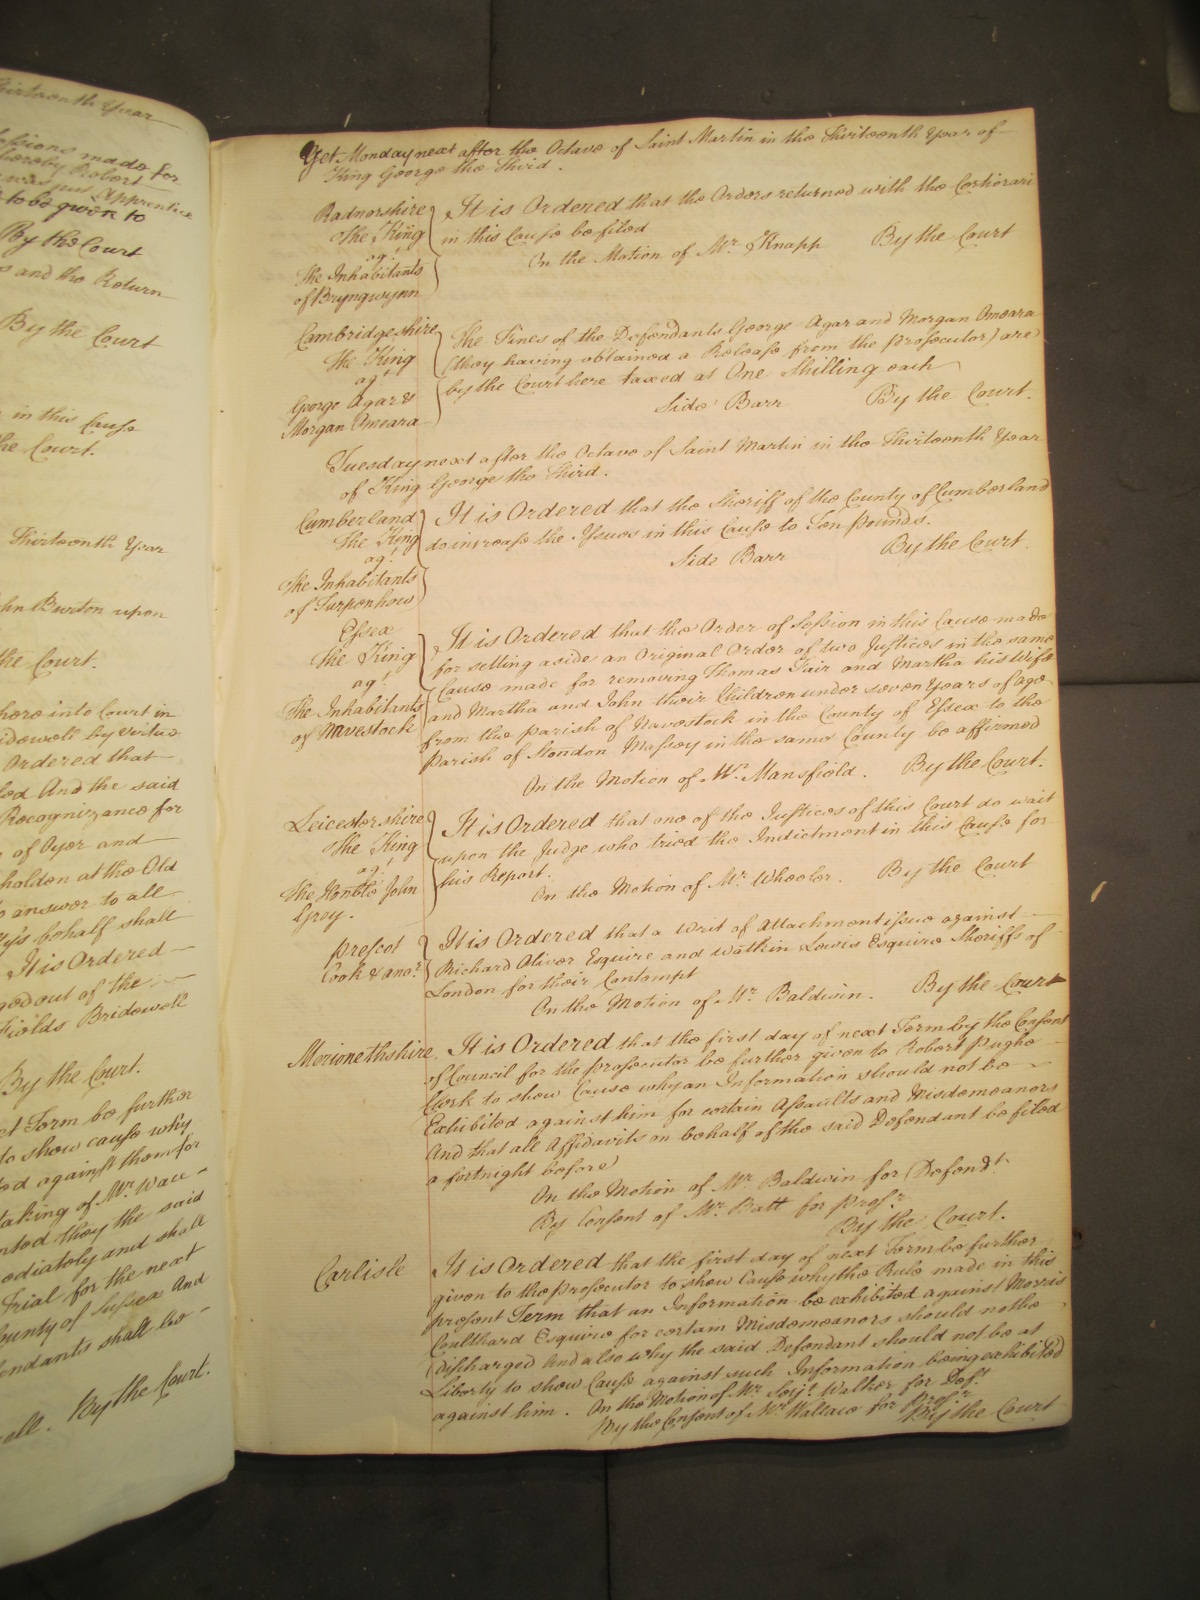 Thirteenth Year
Sessions made for
hereby Robert
Apprentice
to be given to
By the Court
and the Return
By the Court
in this Cause
the Court.
Thirteenth Year
John Burton upon
the Court.
here into Court in
idewell by virtue
Ordered that
And the said
Recognizance for
of Oyer and
holden at the Old
to answer to all
behalf shall
It is Ordered
out of the
Fields Bridewell
By the Court.
Term be further
to show cause why
against them for
taking of Mr. Wall
they the said
ediately and shall
Trial for the next
County of Sussex And
endants shall be
all. By the Court.
Yet Monday next after the Octave of Saint Martin in the Thirteenth Year of
King George the Third.
Radnorshire
The King
agt.
The Inhabitants
of Bryngwynn
It is Ordered that the Orders returned with the Certiorari
in this Cause be filed
On the Motion of Mr. Knapp By the Court
Cambridgeshire
The King
agt.
George Agar &
Morgan Omeara
The Fines of the Defendants George Agar and Morgan Omeara
(they having obtained a Release from the Prosecutor) are
by the Court here taxed at One Shilling each
Side Barr By the Court.
Tuesday next after the Octave of Saint Martin in the Thirteenth Year
of King George the Third.
Cumberland
The King
agt.
The Inhabitants
of Turpenhow
It is Ordered that the Sheriff of the County of Cumberland
do increase the Issues in this Cause to Ten pounds.
Side Barr By the Court.
Essex
The King
agt.
The Inhabitants
of Navestock
It is Ordered that the Order of Session in this Cause made
for setting aside an Original Order of two Justices in the same
Cause made for removing Thomas Fair and Martha his Wife
and Martha and John their Children under seven Years of age
from the parish of Navestock in the County of Essex to the
Parish of Stondon Massey in the same County be affirmed
On the Motion of Mr. Mansfield. By the Court.
Leicestershire
The King
agt.
The Honble John
Grey.
It is Ordered that one of the Justices of this Court do wait
upon the Judge who tried the Indictment in this Cause for
his Report.
On the Motion of Mr. Wheeler. By the Court
Prescot
Cook & anor.
It is Ordered that a Writ of Attachment issue against
Richard Oliver Esquire and Watkin Lewis Esquire Sheriffs of
London for their Contempt
On the Motion of Mr. Baldwin. By the Court
Merionethshire
It is Ordered that the first day of next Term by the Consent
of Council for the Prosecutor be further given to Robert Pughe
Clerk to show Cause why an Information should not be
Exhibited against him for certain Assaults and Misdemeanors
And that all Affidavits on behalf of the said Defendant be filed
a fortnight before
On the Motion of Mr. Baldwin for Defendt.
By Consent of Mr. Batt for Prosr.
By the Court.
Carlisle
It is Ordered that the first day of next Term be further
given to the Prosecutor to show Cause why the Rule made in this
present Term that an Information be exhibited against Morris
Coulthard Esquire for certain Misdemeanors should not be
discharged And also why the said Defendant should not be at
Liberty to show Cause against such Information being exhibited
against him. On the Motion of Mr. Serjt. Walker for Deft.
By the Consent of Mr. Wallace for Prosr.
By the Court